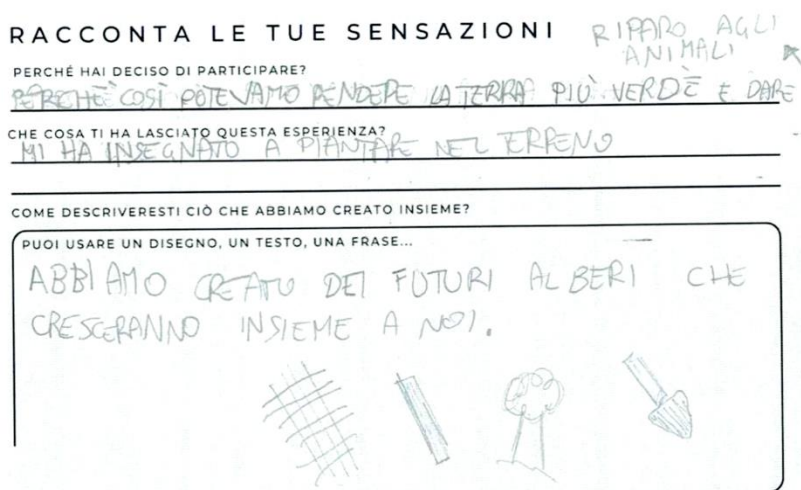 RACCONTA LE TUE SENSAZIONI
RIPARO AGLI
ANIMALI
PERCHÉ HAI DECISO DI PARTECIPARE?
PERCHÈ COSÌ POTEVAMO RENDERE LA TERRA PIÙ VERDÈ E DARE
CHE COSA TI HA LASCIATO QUESTA ESPERIENZA?
MI HA INSEGNATO A PIANTARE NEL TERRENO
COME DESCRIVERESTI CIÒ CHE ABBIAMO CREATO INSIEME?
PUOI USARE UN DISEGNO, UN TESTO, UNA FRASE...
ABBIAMO CREATO DEI FUTURI ALBERI CHE
CRESCERANNO INSIEME A NOI.